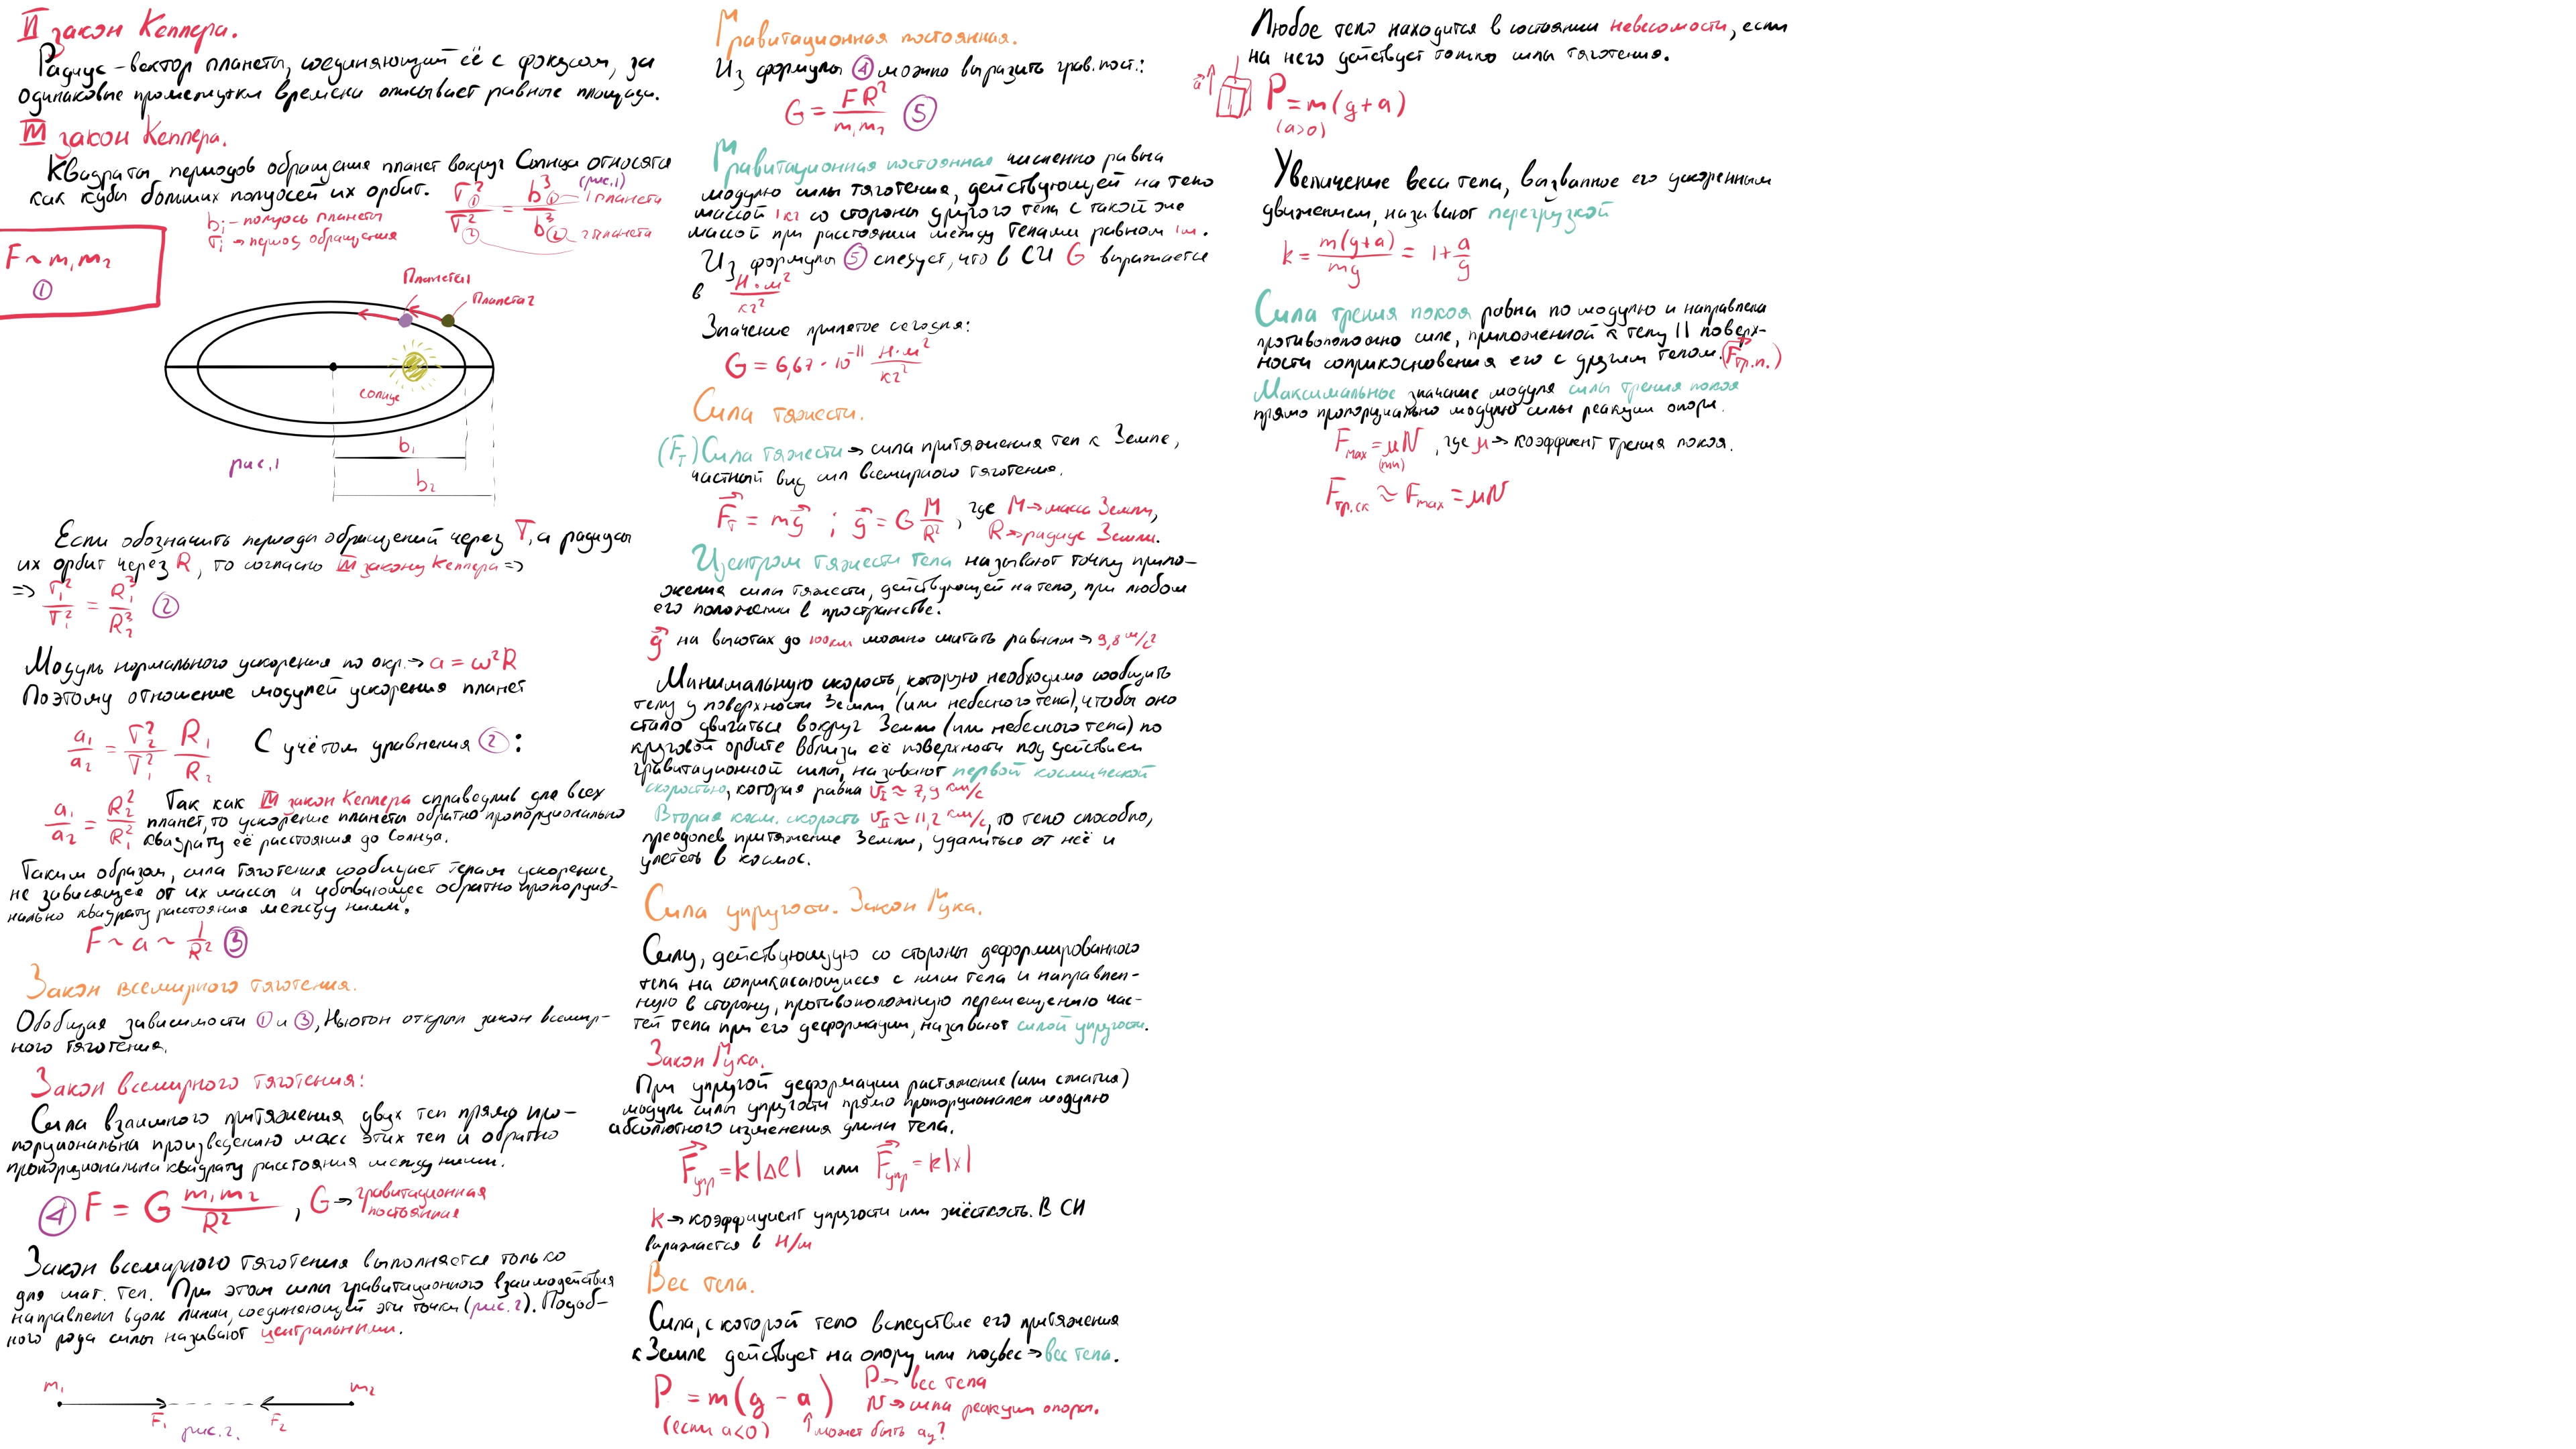 II закон Кеплера.
Радиус-вектор планеты, соединяющий её с фокусом, за
одинаковые промежутки времени описывает равные площади.
III закон Кеплера.
Квадраты периодов обращения планет вокруг Солнца относятся
как кубы больших полуосей их орбит. T₁²/T₂² = b₁³/b₂³ (рис.1)
1 планета
2 планета
bᵢ – полуось планеты
Tᵢ → период обращения
F ~ m₁m₂
①
Планета1
Планета2
солнце
b₁
рис.1
b₂
Если обозначить периоды обращений через T, а радиусы
их орбит через R, то согласно III закону Кеплера =>
=> T₁²/T₁² = R₁³/R₂³ ②
Модуль нормального ускорения по окр. → a = ω²R
Поэтому отношение модулей ускорения планет
a₁/a₂ = T₂²/T₁² R₁/R₂ С учётом уравнения ②:
a₁/a₂ = R₂²/R₁² Так как III закон Кеплера справедлив для всех
планет, то ускорение планеты обратно пропорционально
квадрату её расстояния до Солнца.
Таким образом, сила тяготения сообщает телам ускорение,
не зависящее от их массы и убывающее обратно пропорцио-
нально квадрату расстояния между ними.
F ~ a ~ 1/R² ③
Закон всемирного тяготения.
Обобщая зависимости ① и ③, Ньютон открыл закон всемир-
ного тяготения.
Закон всемирного тяготения:
Сила взаимного притяжения двух тел прямо про-
порциональна произведению масс этих тел и обратно
пропорциональна квадрату расстояния между ними.
④ F = G m₁m₂/R² , G → гравитационная
постоянная
Закон всемирного тяготения выполняется только
для мат. тел. При этом силы гравитационного взаимодействия
направлены вдоль линии, соединяющей эти точки (рис.2). Подоб-
ного рода силы называют центральными.
m₁ m₂
F₁ F₂
рис.2.
Гравитационная постоянная.
Из формулы ④ можно выразить грав. пост.:
G = FR²/m₁m₂ ⑤
Гравитационная постоянная численно равна
модулю силы тяготения, действующей на тело
массой 1 кг со стороны другого тела с такой же
массой при расстоянии между телами равном 1м.
Из формулы ⑤ следует, что в СИ G выражается
в Н·м²/кг²
Значение принятое сегодня:
G = 6,67 · 10⁻¹¹ Н·м²/кг²
Сила тяжести.
(Fт) Сила тяжести → сила притяжения тел к Земле,
частный вид сил всемирного тяготения.
F⃗т = mg⃗ ; g⃗ = G M/R² , где M → масса Земли,
R → радиус Земли.
Центром тяжести тела называют точку прило-
жения силы тяжести, действующей на тело, при любом
его положении в пространстве.
g⃗ на высотах до 100км можно считать равным → 9,8 м/с²
Минимальную скорость, которую необходимо сообщить
телу у поверхности Земли (или небесного тела), чтобы оно
стало двигаться вокруг Земли (или небесного тела) по
круговой орбите вблизи её поверхности под действием
гравитационной силы, называют первой космической
скоростью, которая равна υI ≈ 7,9 км/с
Вторая косм. скорость υII ≈ 11,2 км/с, то тело способно,
преодолев притяжение Земли, удалиться от неё и
улететь в космос.
Сила упругости. Закон Гука.
Силу, действующую со стороны деформированного
тела на соприкасающиеся с ним тела и направлен-
ную в сторону, противоположную перемещению час-
тей тела при его деформации, называют силой упругости.
Закон Гука.
При упругой деформации растяжения (или сжатия)
модуль силы упругости прямо пропорционален модулю
абсолютного изменения длины тела.
F⃗упр = k|Δl| или F⃗упр = k|x|
k → коэффициент упругости или жёсткость. В СИ
выражается в Н/м
Вес тела.
Сила, с которой тело вследствие его притяжения
к Земле действует на опору или подвес → вес тела.
P = m(g - a) P → вес тела
N → сила реакции опоры.
(если a<0) ↑ может быть aᵧ?
Любое тело находится в состоянии невесомости, если
на него действует только сила тяготения.
a⃗↑ P = m(g+a)
(a>0)
Увеличение веса тела, вызванное его ускоренным
движением, называют перегрузкой
k = m(g+a)/mg = 1+ a/g
Сила трения покоя равна по модулю и направлена
противоположно силе, приложенной к телу || поверх-
ности соприкосновения его с другим телом. (F⃗тр.п.)
Максимальное значение модуля силы трения покоя
прямо пропорционально модулю силы реакции опоры.
Fmax = μN , где μ → коэффиент трения покоя.
(тп)
Fтр.ск ≃ Fmax = μN